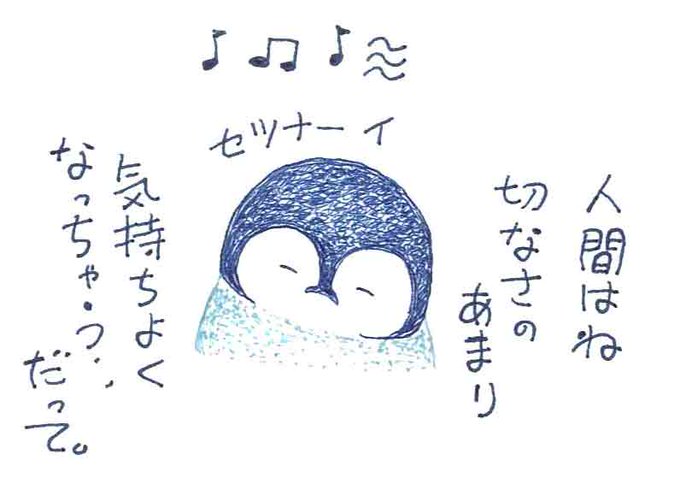 セツナーイ
人間はね
切なさの
あまり
気持ちよく
なっちゃう、、
だって。